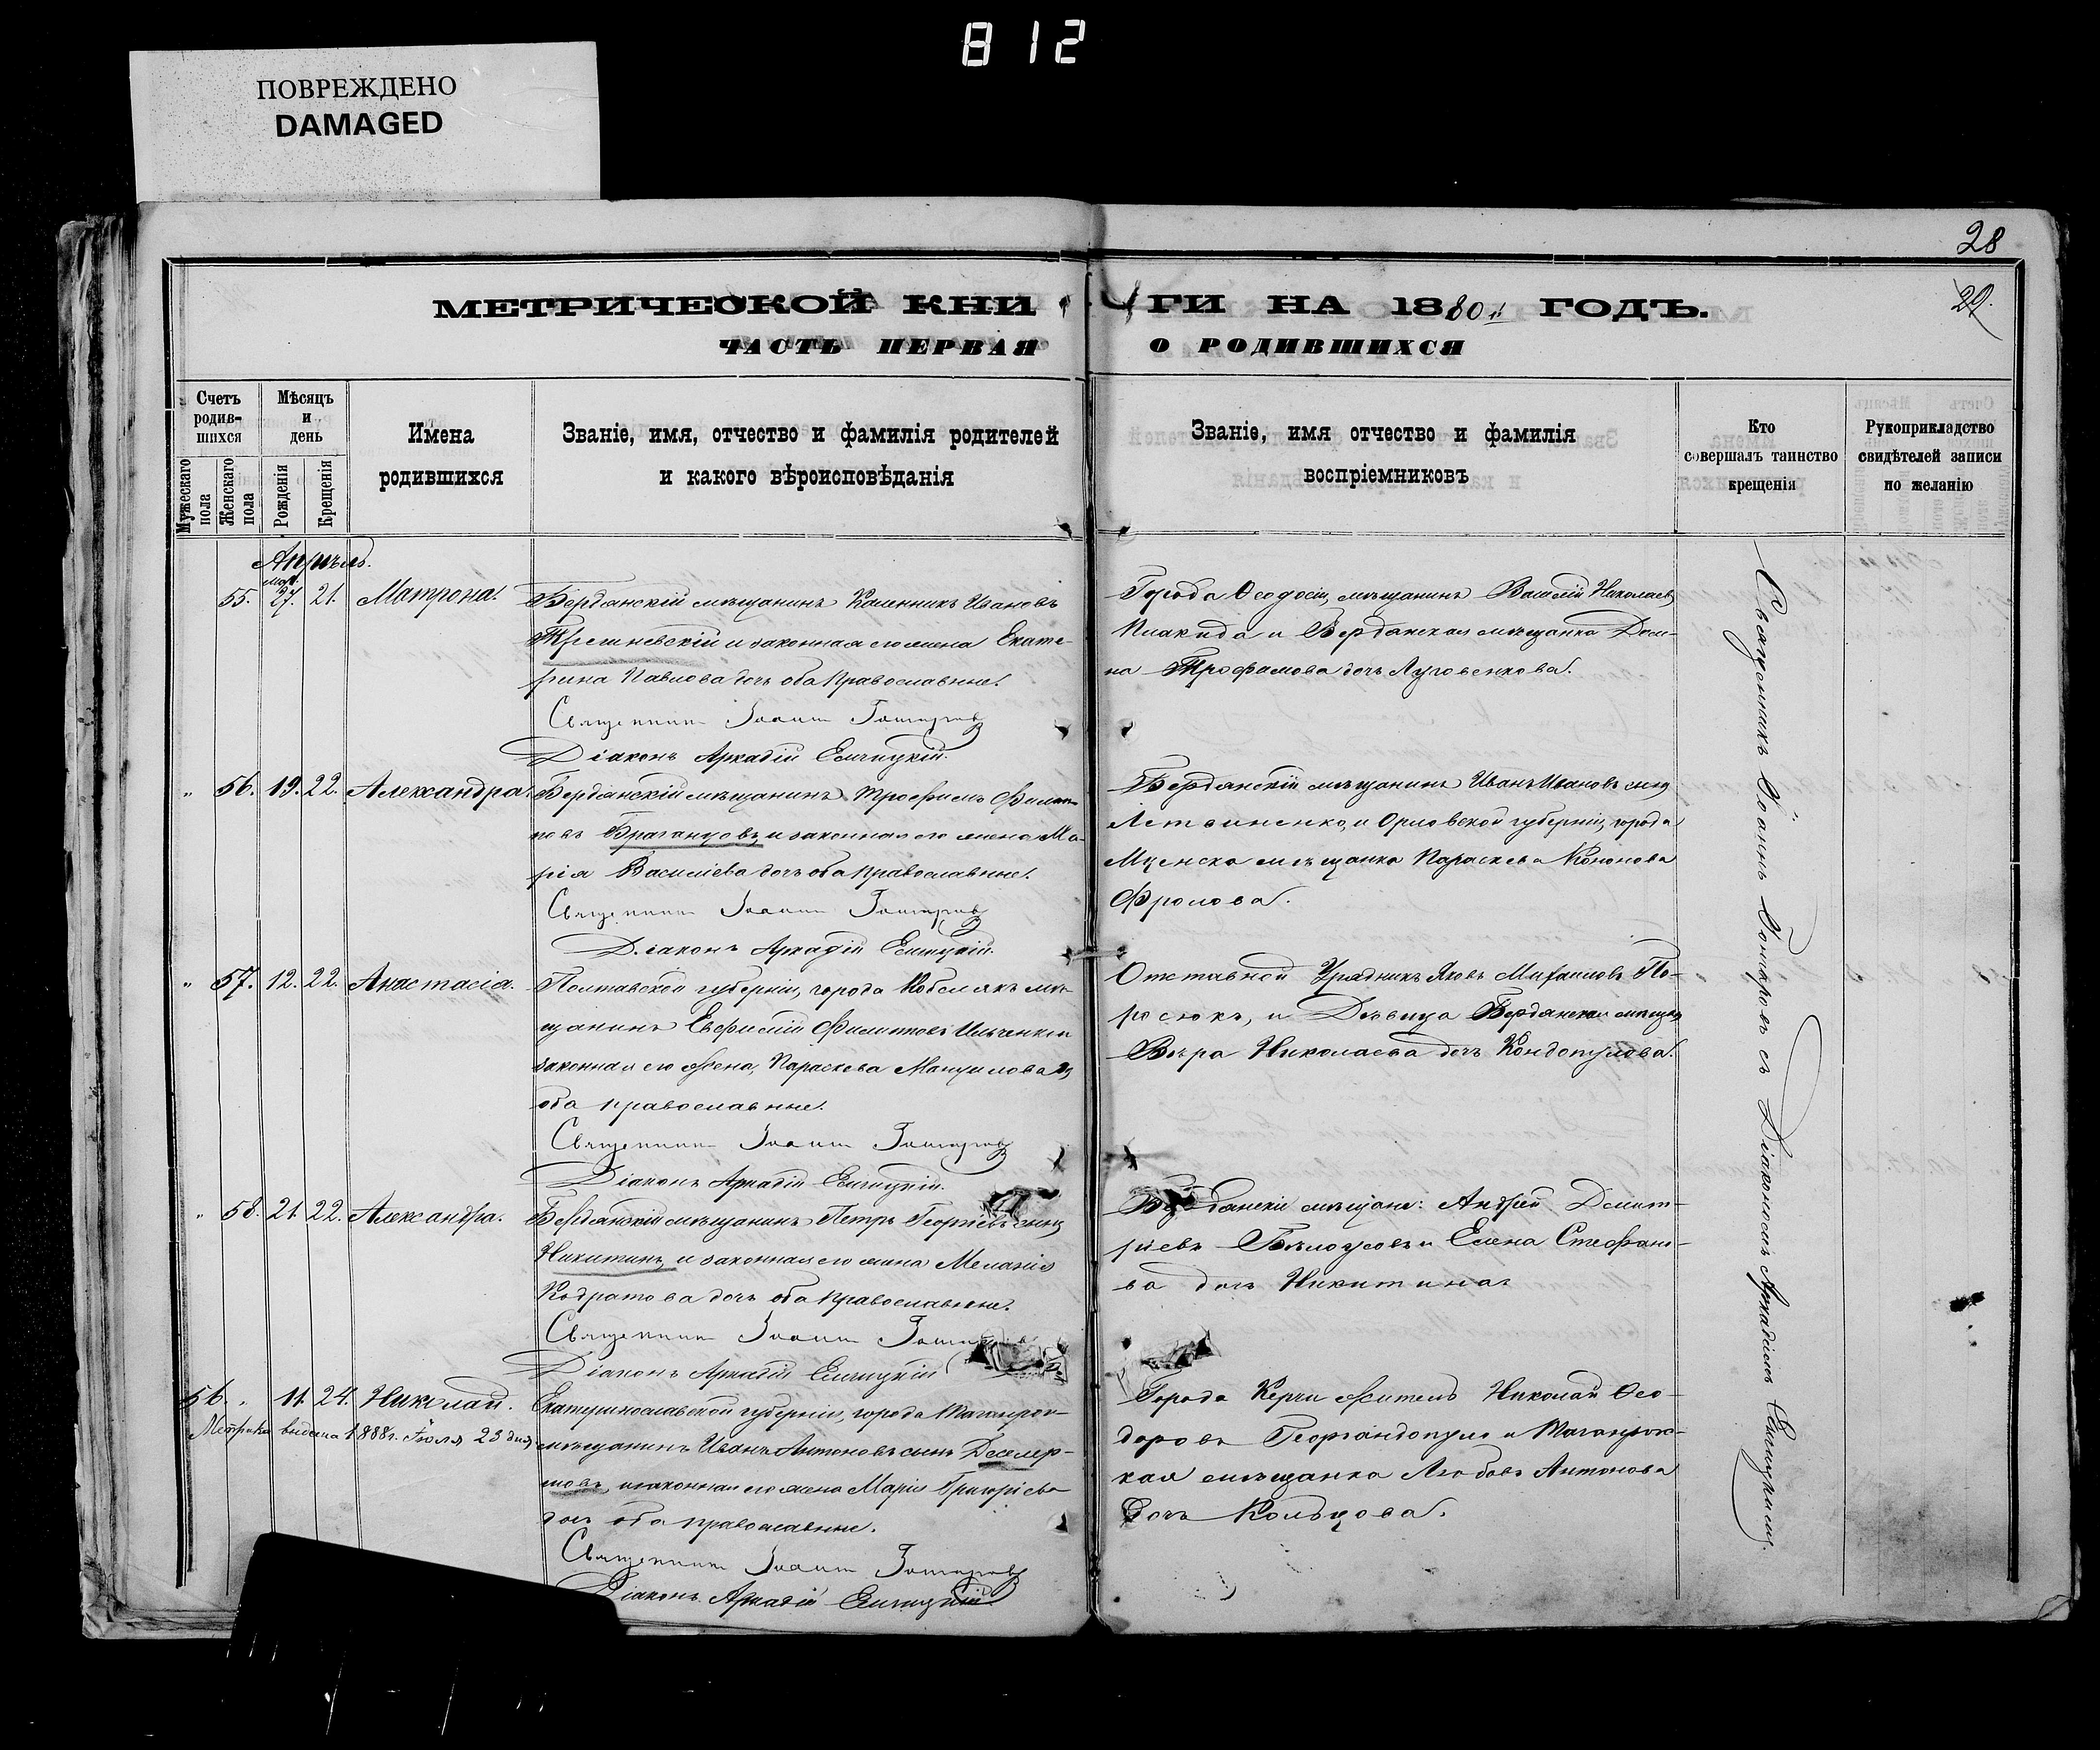 812
ПОВРЕЖДЕНО
DAMAGED
28
29.
МЕТРИЧЕСКОЙ КНИГИ НА 1880й ГОДЪ.
ЧАСТЬ ПЕРВАЯ О РОДИВШИХСЯ
Счетъ родившихся
Мужескаго пола
Женскаго пола
Мѣсяцъ и день
Рожденія
Крещенія
Имена родившихся
Званіе, имя, отчество и фамилія родителей
и какого вѣроисповѣданія
Званіе, имя отчество и фамилія
воспріемниковъ
Кто
совершалъ таинство
крещенія
Рукоприкладство
свидѣтелей записи
по желанію
Апрѣль.
мар.
55. 27. 21. Матрона.
Бердянскій мѣщанинъ Каленникъ Ивановъ
и законная его жена Екате-
рина Павлова дочь оба Православные.
Священникъ Іоаннъ
Діаконъ Аркадій
Города Ѳеодосіи, мѣщанинъ Василій Николаевъ
Плакида и Бердянская мѣщанка Дом-
на Трофимова дочь Луговенкова.
" 56. 19. 22. Александра.
Бердянскій мѣщанинъ Трофимъ Филип-
повъ Браганцовъ и законная его жена Ма-
рія Василіева дочь оба Православные.
Священникъ Іоаннъ
Діаконъ Аркадій
Бердянскій мѣщанинъ Иванъ Ивановъ сынъ
Летвиненко, и Орловской губерніи, города
Мценска мѣщанка Параскева Кононова
Фролова.
" 57. 12. 22. Анастасія.
Полтавской губерніи, города Кобелякъ мѣ-
щанинъ Евфимій Филиповъ Ильченко и
законная его жена, Параскева
оба православные.
Священникъ Іоаннъ
Діаконъ Аркадій
Отставной Урядникъ Яковъ Михаиловъ По-
росюкъ, и Дѣвица Бердянская
Вѣра Николаева дочь Кондопулова.
" 58. 21. 22. Александра.
Бердянскій мѣщанинъ Петръ Георгіевъ сынъ
Никитинъ и законная его жена Меланія
Кодратова дочь оба Православные.
Священникъ Іоаннъ
Діаконъ Аркадій
Бердянскіе мѣщане: Андрей Димит-
ріевъ Бѣлоусовъ и Елена Стефано-
ва дочь Никитина
56. " 11. 24. Николай.
Метрика выдана 1888 г. Іюля 23 дня
Екатеринославской губерніи, города Таганрога
мѣщанинъ Иванъ Антоновъ сынъ
и законная его жена Марія Григоріева
дочь оба православные.
Священникъ Іоаннъ
Діаконъ Аркадій
Города Керчи житель Николай Ѳео-
доровъ Георгіандопуло и Таганрогс-
кая мѣщанка Любовь Антонова
дочь Кольцова.
Священникъ Іоаннъ съ Діакономъ Аркадіемъ